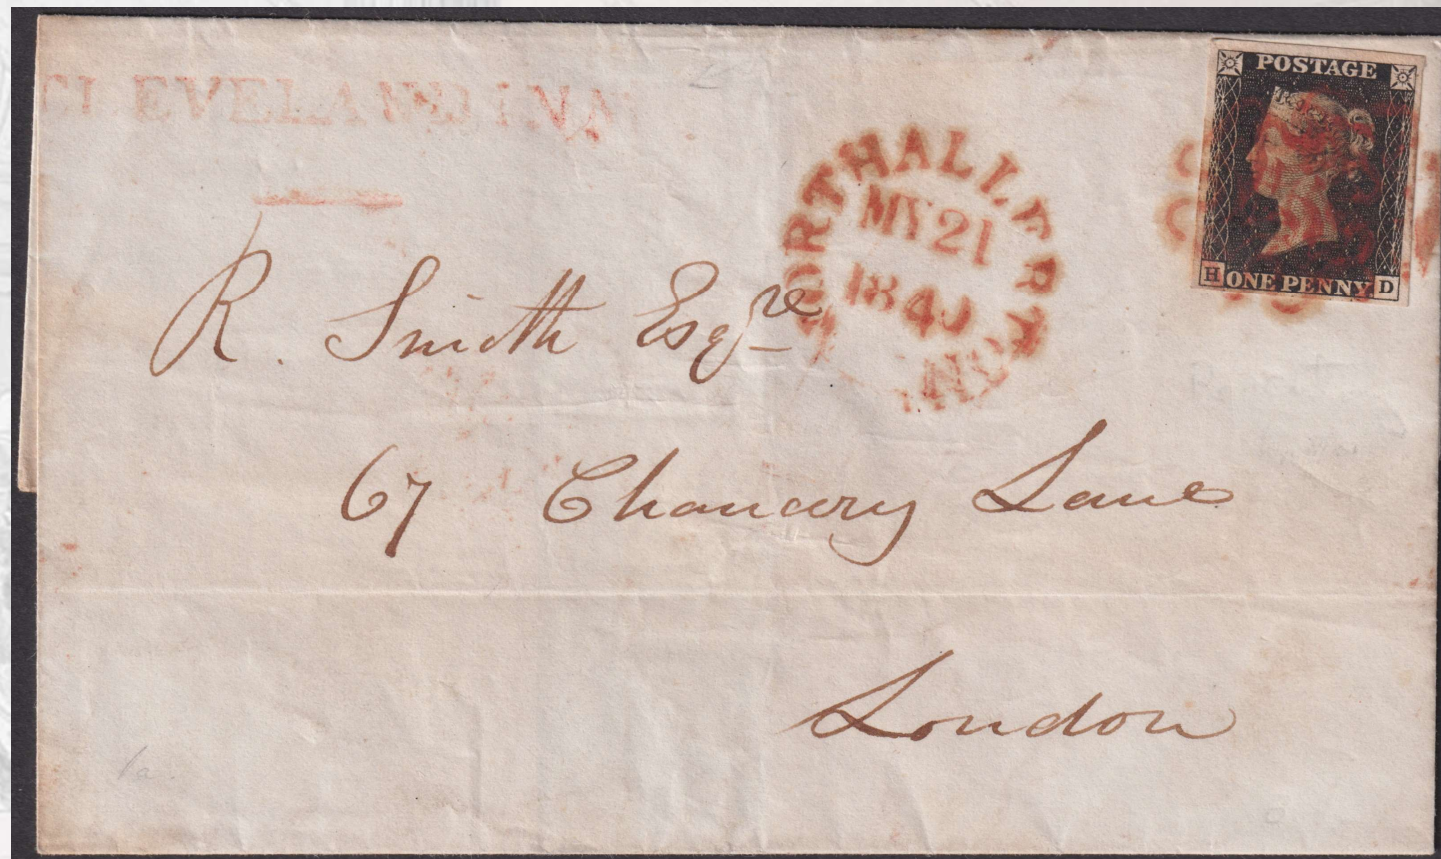 CLEVELAND INN
POSTAGE
H ONE PENNY D
NORTHALLERTON
MY 21
1840
R. Smith Esqre
67 Chancery Lane
London
1a